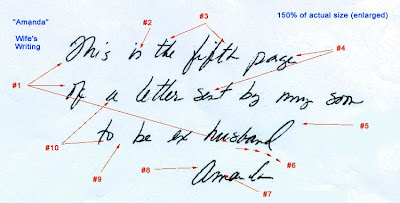 "Amanda" #2 #3 150% of actual size (enlarged)
Wife's
Writing
This is the fifth page #4
#1 of a letter sent by my soon
#5
to be ex husband
#10 #6
#9 #8 Amanda
#7